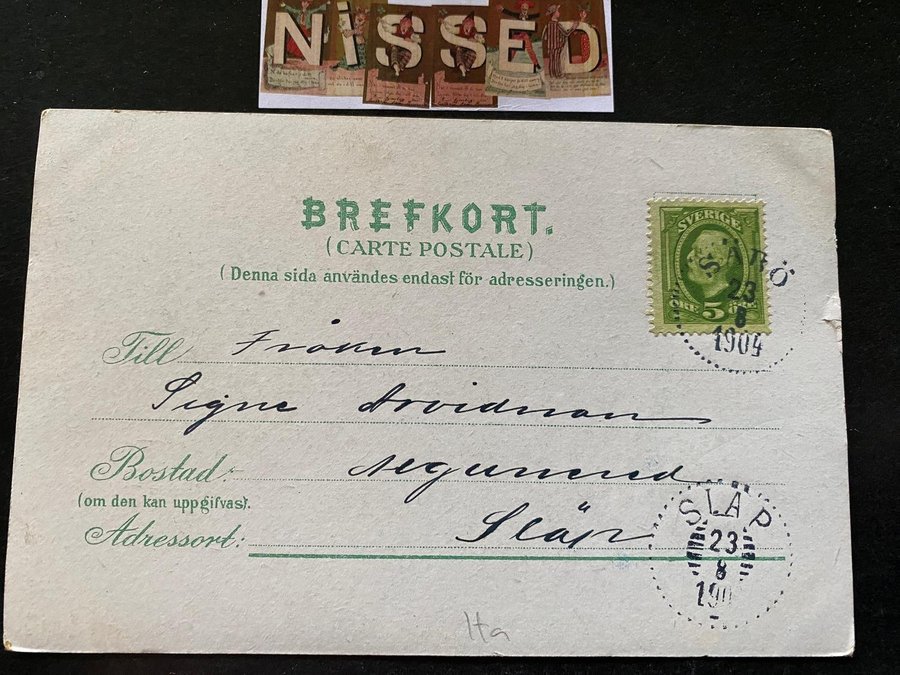 NISSED
BREFKORT.
(CARTE POSTALE)
(Denna sida användes endast för adresseringen.)
SVERIGE
ÖRE 5 ÖRE
SÄRÖ
23
8
1904
Till Fröken
Signe Arvidsson
Bostad:
(om den kan uppgifvas).
Adressort: Släp
SLÄP
23
8
Ha